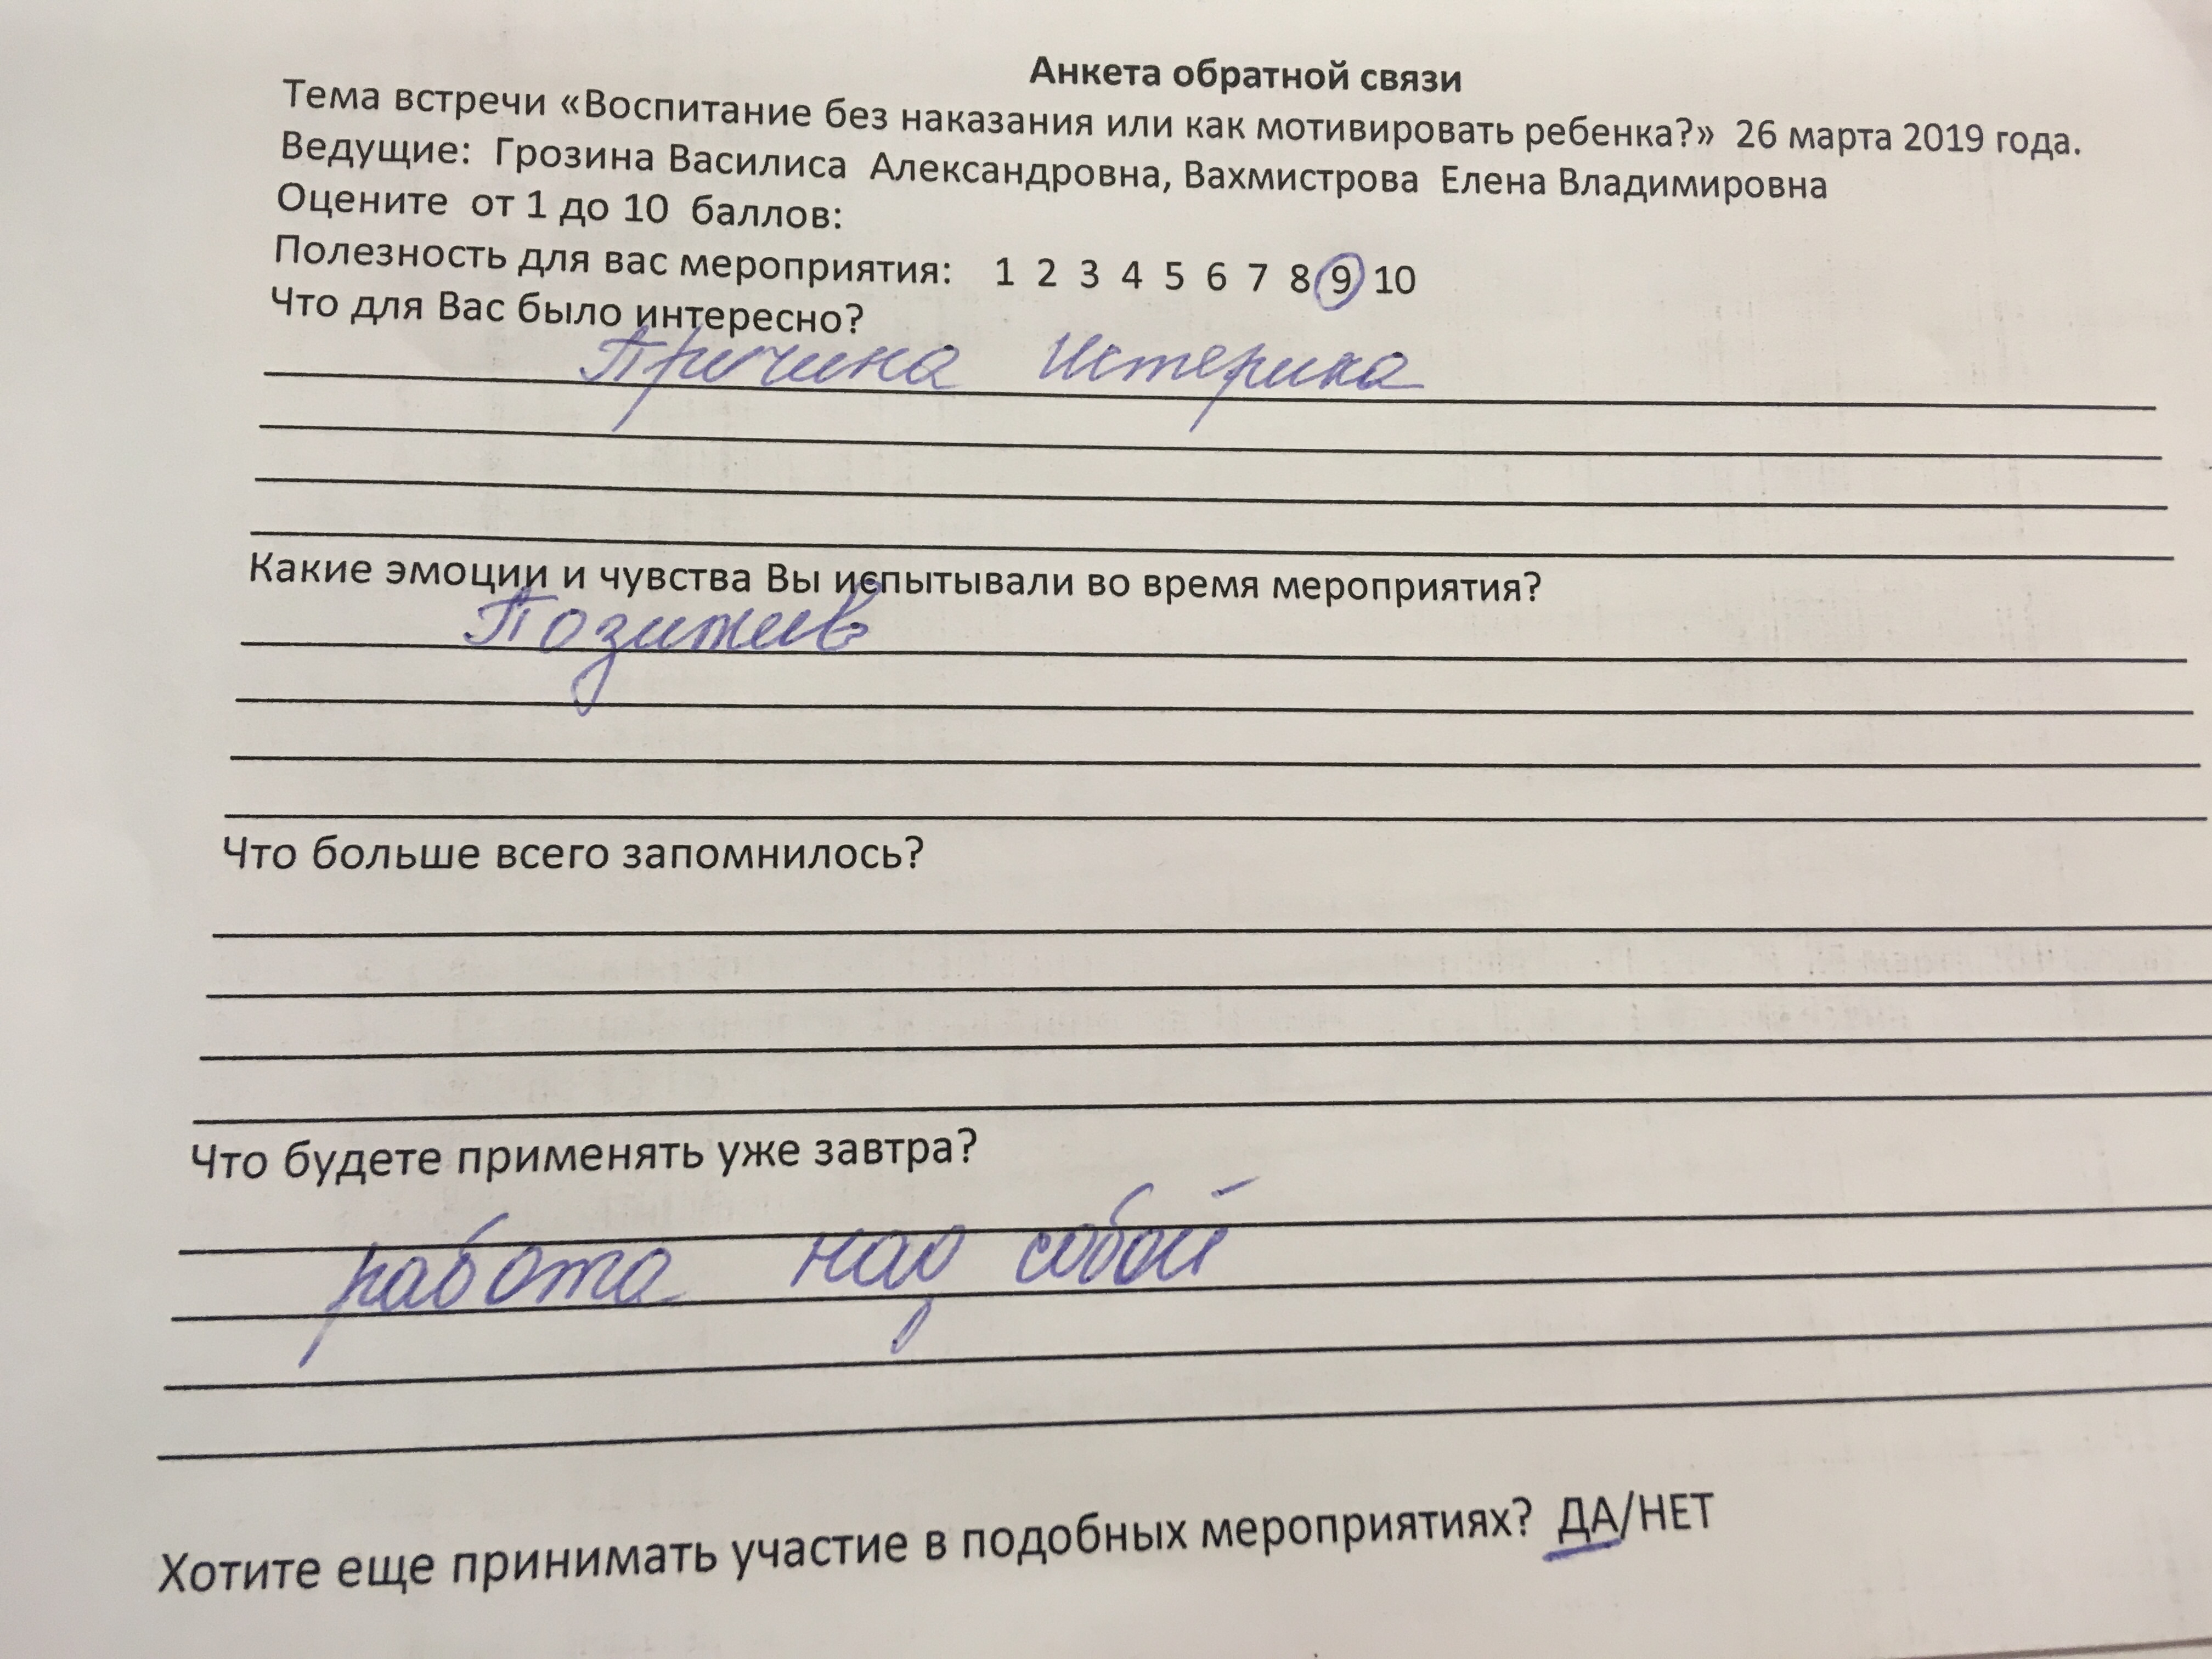 Анкета обратной связи
Тема встречи «Воспитание без наказания или как мотивировать ребенка?» 26 марта 2019 года.
Ведущие: Грозина Василиса Александровна, Вахмистрова Елена Владимировна
Оцените от 1 до 10 баллов:
Полезность для вас мероприятия: 1 2 3 4 5 6 7 8 9 10
Что для Вас было интересно?
Причина Истерика
Какие эмоции и чувства Вы испытывали во время мероприятия?
Позитив
Что больше всего запомнилось?
Что будете применять уже завтра?
работа над собой
Хотите еще принимать участие в подобных мероприятиях? ДА/НЕТ